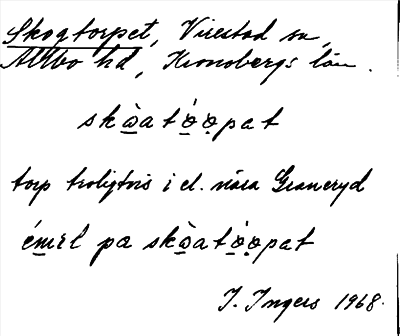 Skogtorpet, Virestad sn,
Allbo hd, Kronobergs län.
skɷ̀atɷ́ɷpat
torp troligtvis i el. nära Graneryd
émɪl pa skɷ̀atɷ́ɷpat
I. Ingers 1968.